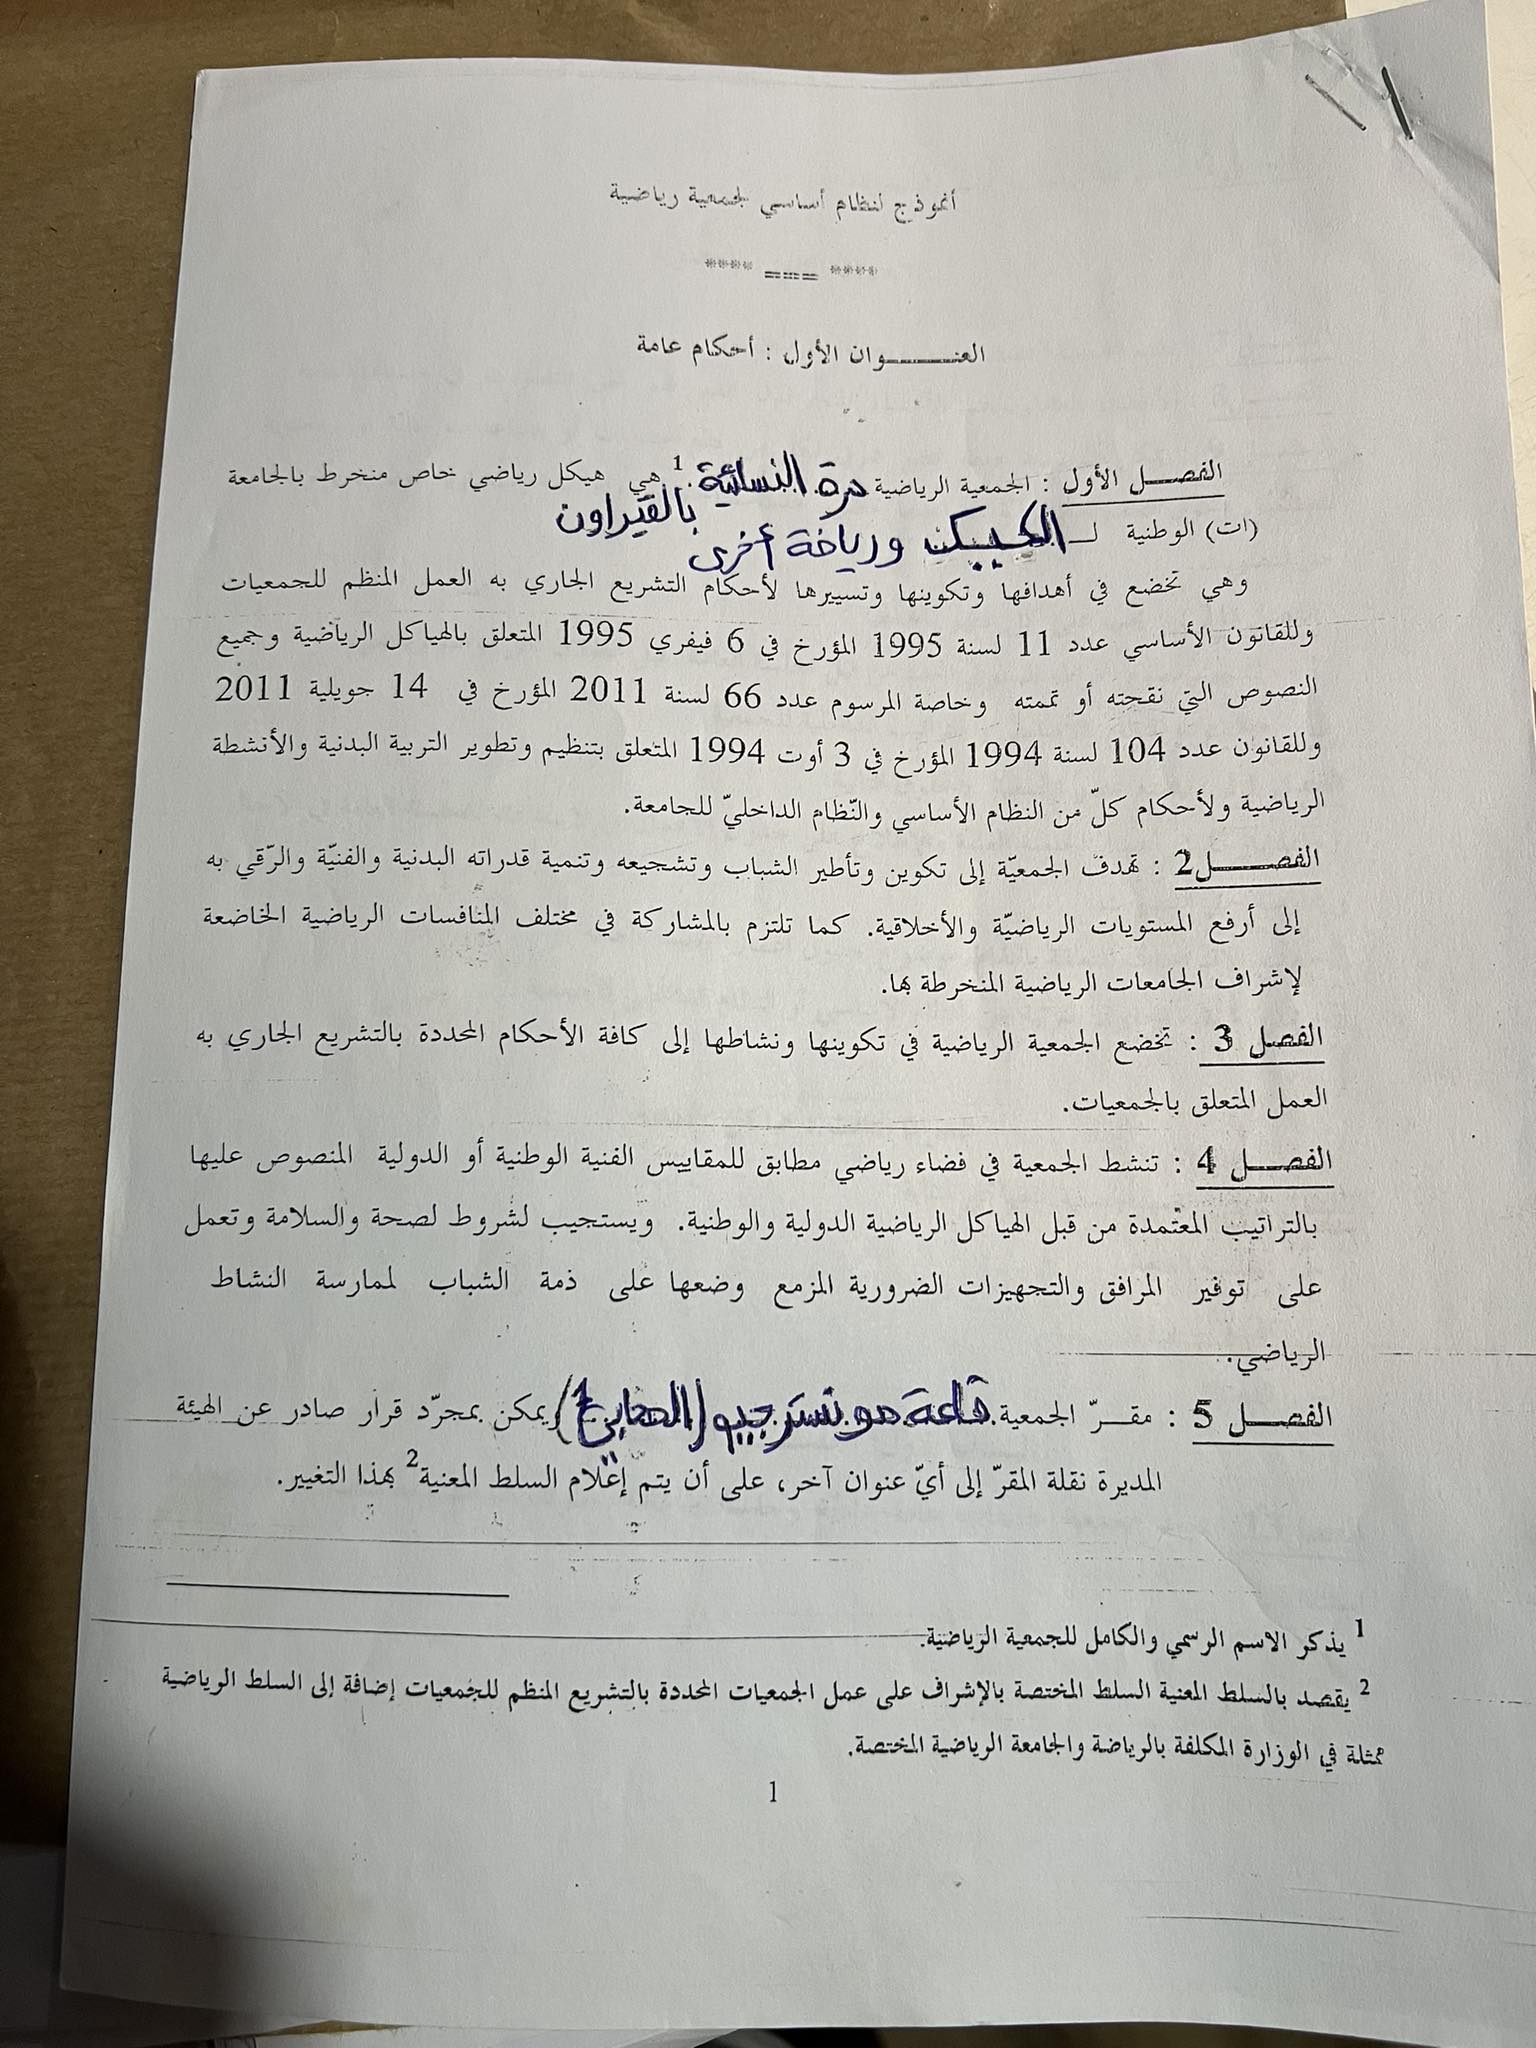 أنموذج لنظام أساسي لجمعية رياضية
**** === ****
العنــــوان الأول : أحكام عامة
الفصـــل الأول : الجمعية الرياضية درة النسائية 1 هي هيكل رياضي خاص منخرط بالجامعة
بالقيروان
(ات) الوطنية لـ ورياضة أخرى
وهي تخضع في أهدافها وتكوينها وتسييرها لأحكام التشريع الجاري به العمل المنظم للجمعيات
وللقانون الأساسي عدد 11 لسنة 1995 المؤرخ في 6 فيفري 1995 المتعلق بالهياكل الرياضية وجميع
النصوص التي نقحته أو تممته وخاصة المرسوم عدد 66 لسنة 2011 المؤرخ في 14 جويلية 2011
وللقانون عدد 104 لسنة 1994 المؤرخ في 3 أوت 1994 المتعلق بتنظيم وتطوير التربية البدنية والأنشطة
الرياضية ولأحكام كلّ من النظام الأساسي والنّظام الداخليّ للجامعة.
الفصــــل2 : تهدف الجمعيّة إلى تكوين وتأطير الشباب وتشجيعه وتنمية قدراته البدنية والفنيّة والرّقي به
إلى أرفع المستويات الرياضيّة والأخلاقية. كما تلتزم بالمشاركة في مختلف المنافسات الرياضية الخاضعة
لإشراف الجامعات الرياضية المنخرطة بها.
الفصــل 3 : تخضع الجمعية الرياضية في تكوينها ونشاطها إلى كافة الأحكام المحددة بالتشريع الجاري به
العمل المتعلق بالجمعيات.
الفصـــل 4 : تنشط الجمعية في فضاء رياضي مطابق للمقاييس الفنية الوطنية أو الدولية المنصوص عليها
بالتراتيب المعتمدة من قبل الهياكل الرياضية الدولية والوطنية. ويستجيب لشروط لصحة والسلامة وتعمل
على توفير المرافق والتجهيزات الضرورية المزمع وضعها على ذمة الشباب لممارسة النشاط
الرياضي.
الفصـــل 5 : مقـــرّ الجمعية قاعة ويمكن بمجرّد قرار صادر عن الهيئة
المديرة نقلة المقرّ إلى أيّ عنوان آخر، على أن يتم إعلام السلط المعنية2 بهذا التغيير.
1 يذكر الاسم الرسمي والكامل للجمعية الرياضية.
2 يقصد بالسلط المعنية السلط المختصة بالإشراف على عمل الجمعيات المحددة بالتشريع المنظم للجمعيات إضافة إلى السلط الرياضية
ممثلة في الوزارة المكلفة بالرياضة والجامعة الرياضية المختصة.
1